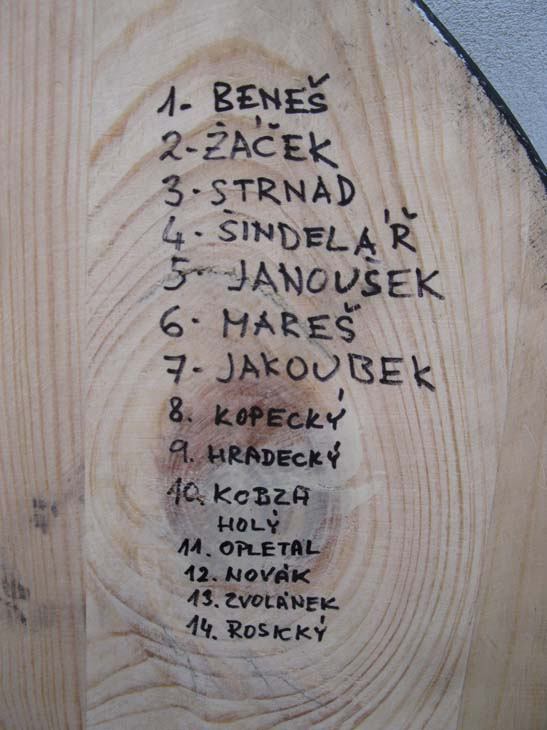 1- BENEŠ
2- ŽÁČEK
3- STRNAD
4- ŠINDELÁŘ
5- JANOUŠEK
6- MAREŠ
7- JAKOUBEK
8. KOPECKÝ
9. HRADECKÝ
10. KOBZA
HOLÝ
11. OPLETAL
12. NOVÁK
13. ZVOLÁNEK
14. ROSICKÝ